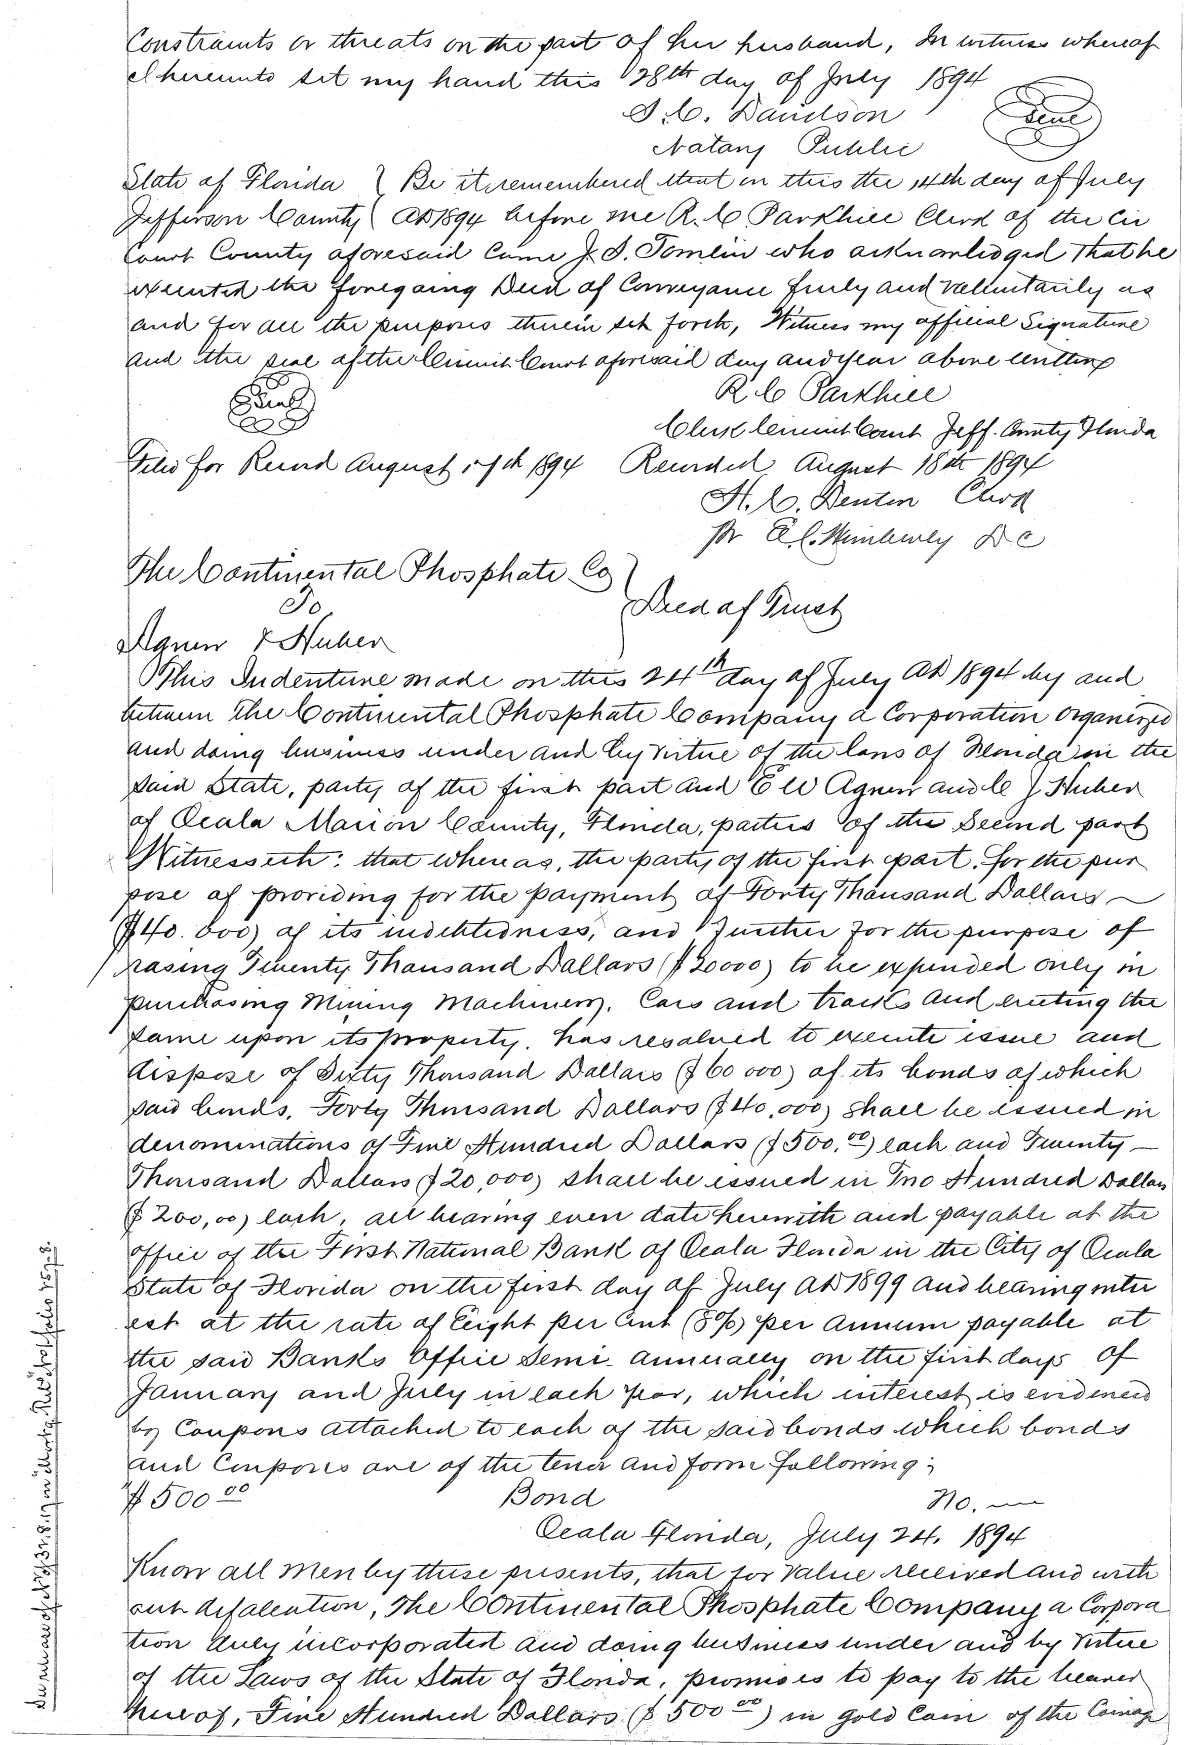 Constraints or threats on the part of her husband, In witness whereof
I hereunto set my hand this 28th day of July 1894
S. C. Davidson
Seal
Notary Public
State of Florida } Be it remembered that on this the 14th day of July
Jefferson County { AD 1894 before me R. C Parkhill Clerk of the Cir
Court County aforesaid came J. S. Tomlin who acknowledged that he
executed the foregoing Deed of Conveyance freely and voluntarily as
and for all the purposes therein set forth, Witness my official Signature
and the seal of the Circuit Court aforesaid day and year above written
R C Parkhill
Seal
Clerk Circuit Court Jeff. County Florida
Filed for Record August 17th 1894 Recorded August 18th 1894
H. C. Denton Clerk
pr E. C. Wimberly D C
The Continental Phosphate Co }
To
Deed of Trust
Agnew & Huber
This Indenture made on this 24th day of July AD 1894 by and
between The Continental Phosphate Company a Corporation organized
and doing business under and by virtue of the laws of Florida in the
said State, party of the first part and E W Agnew and C J Huber
of Ocala Marion County, Florida, parties of the Second part
Witnesseth: that whereas, the party of the first part, for the pur
pose of providing for the payment of Forty Thousand Dollars
($40.000) of its indebtedness, and further for the purpose of
rasing Twenty Thousand Dollars ($20000) to be expended only in
purchasing Mining Machinery, Cars and tracks and erecting the
same upon its property, has resolved to execute issue and
dispose of Sixty Thousand Dollars ($60 000) of its bonds of which
said bonds, Forty Thousand Dollars ($40,000) shall be issued in
denominations of Five Hundred Dollars ($500.00) each and Twenty
Thousand Dollars ($20,000) shall be issued in Two Hundred Dollars
($200,00) each, all bearing even date herewith and payable at the
office of the First National Bank of Ocala Florida in the City of Ocala
State of Florida on the first day of July AD 1899 and bearing inter
est at the rate of Eight per Cent (8%) per annum payable at
the said Banks Office Semi-annually on the first days of
January and July in each year, which interest is evidenced
by Coupons attached to each of the said bonds which bonds
and Coupons are of the tenor and form following:
$500 00 Bond No. —
Ocala Florida, July 24, 1894
Know all Men by these presents, that for value received and with
out defalcation, The Continental Phosphate Company a Corpora
tion duly incorporated and doing business under and by virtue
of the Laws of the State of Florida, promises to pay to the bearer
hereof, Five Hundred Dollars ($500 00) in gold Coin of the Coinage